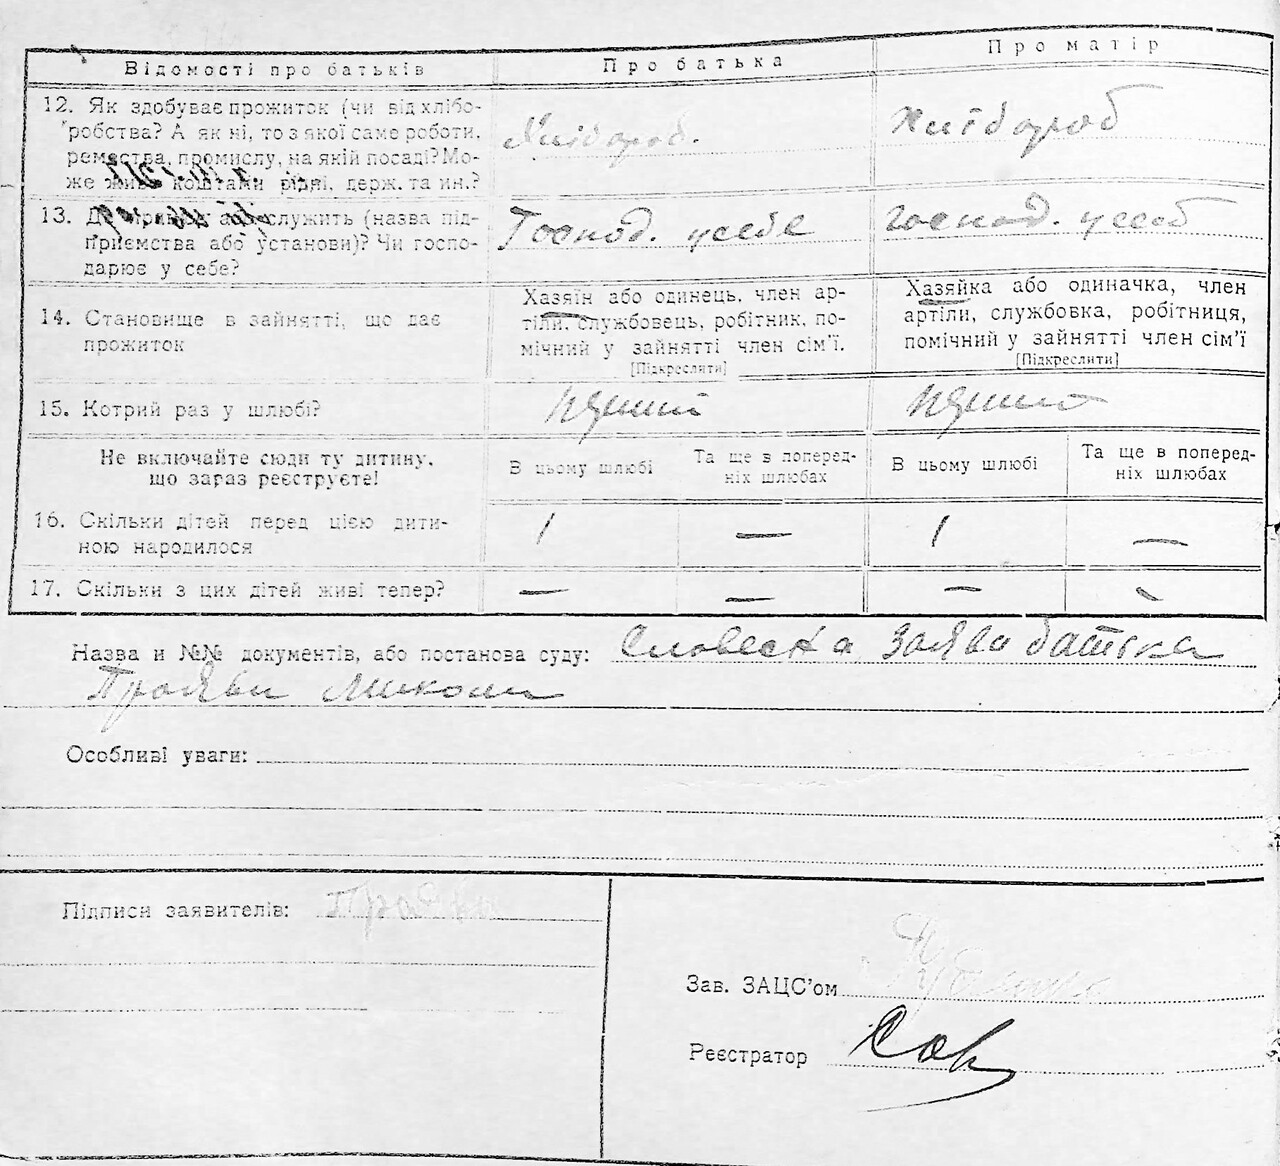 Відомості про батьків Про батька Про матір
12. Як здобуває прожиток (чи від хлібо-
робства? А як ні, то з якої саме роботи,
ремества, промислу, на якій посаді? Мо-
же живе коштами рідні, держ. та ин.?
Хлібороб. Хлібороб
13. Де працює або служить (назва під-
приємства або установи)? Чи госпо-
дарює у себе?
Господ. у себе Господ. у себе
14. Становище в зайнятті, що дає
прожиток
Хазяїн або одинець, член ар-
тіли, службовець, робітник, по-
мічний у зайнятті член сім'ї.
[Підкреслити]
Хазяйка або одиначка, член
артіли, службовка, робітниця,
помічний у зайнятті член сім'ї
[Підкреслити]
15. Котрий раз у шлюбі?
Не включайте сюди ту дитину,
що зараз реєструєте!
В цьому шлюбі
Та ще в поперед-
ніх шлюбах
В цьому шлюбі
Та ще в поперед-
ніх шлюбах
16. Скільки дітей перед цією дити-
ною народилося
1 — 1 —
17. Скільки з цих дітей живі тепер? — — — —
Назва и №№ документів, або постанова суду: Словесна заява батька
Миколи
Особливі уваги:
Підписи заявителів:
Зав. ЗАЦС'ом
Реєстратор